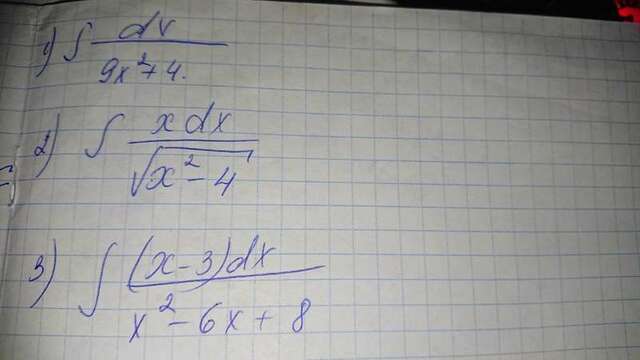 1) ∫ dx / 9x² + 4.
2) ∫ x dx / √x² - 4
3) ∫ (x - 3) dx / x² - 6x + 8